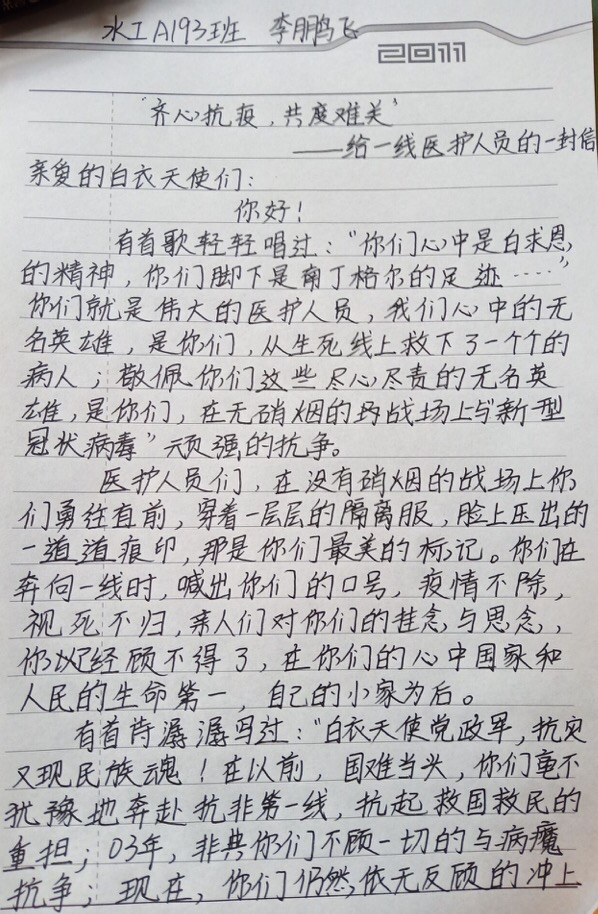 水工A193班 李朋鹏飞
2011
“齐心抗疫，共度难关”
——给一线医护人员的一封信
亲爱的白衣天使们：
你好！
有首歌轻轻唱过：“你们心中是白求恩
的精神，你们脚下是南丁格尔的足迹……”
你们就是伟大的医护人员，我们心中的无
名英雄，是你们，从生死线上救下了一个个的
病人；敬佩你们这些尽心尽责的无名英
雄，是你们，在无硝烟的战场上与“新型
冠状病毒”顽强的抗争。
医护人员们，在没有硝烟的战场上你
们勇往直前，穿着一层层的隔离服，脸上压出的
一道道痕印，那是你们最美的标记。你们在
奔向一线时，喊出你们的口号，疫情不除，
视死不归，亲人们对你们的挂念与思念，
你以已经顾不得了，在你们的心中国家和
人民的生命第一，自己的小家为后。
有首诗潺潺写过：“白衣天使党政军，抗灾
又现民族魂！在以前，国难当头，你们毫不
犹豫地奔赴抗非第一线，抗起救国救民的
重担；03年，非典你们不顾一切的与病魔
抗争；现在，你们仍然，依无反顾的冲上